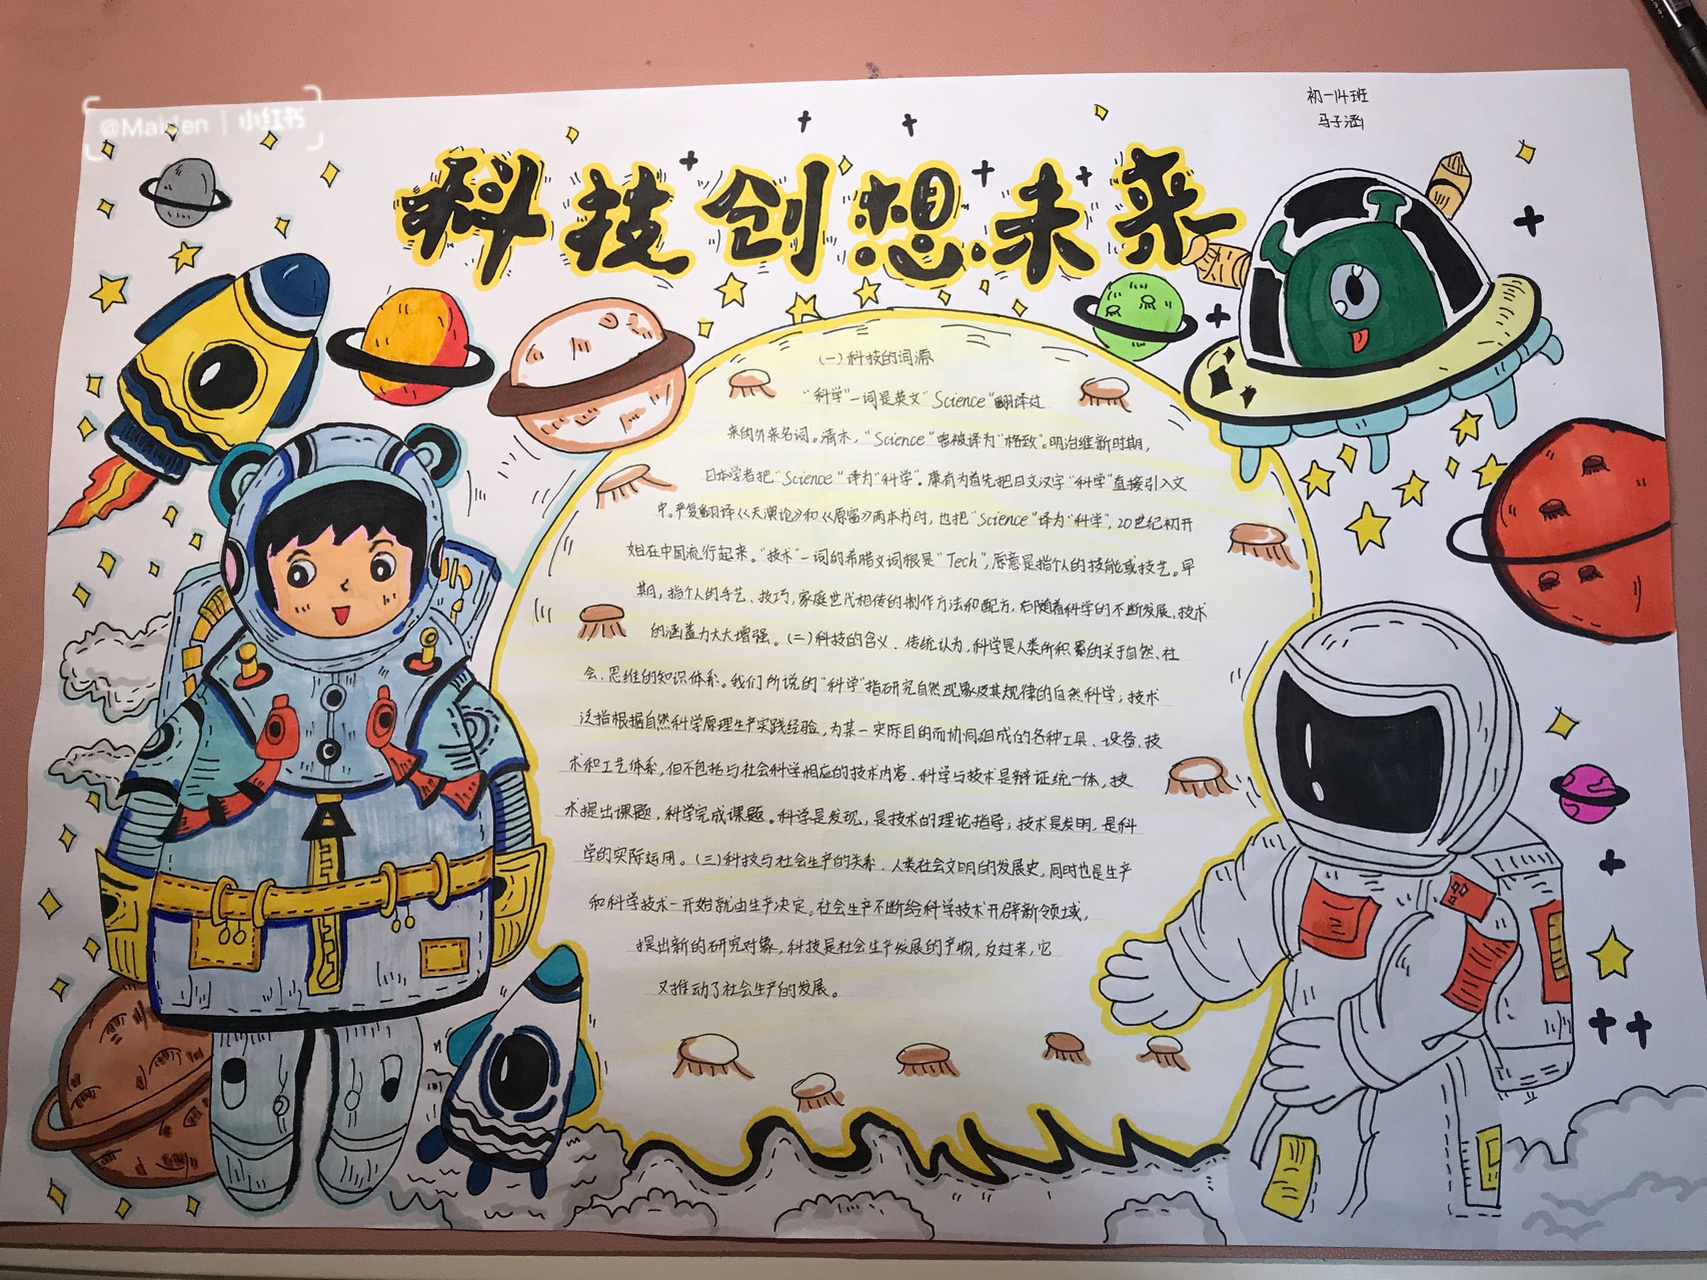 @Maiden | 小红书
初一14班
马子涵
科技创想未来
(一)科技的词源
"科学"一词是英文"Science"翻译过
来的外来名词。清末，"Science"曾被译为"格致"。明治维新时期，
日本学者把"Science"译为"科学"。康有为首先把日文汉字"科学"直接引入文
中。严复翻译《天演论》和《原富》两本书时，也把"Science"译为"科学"，20世纪初开
始在中国流行起来。"技术"一词的希腊文词根是"Tech"，原意是指个人的技能或技艺。早
期，指个人的手艺、技巧，家庭世代相传的制作方法和配方，后随着科学的不断发展，技术
的涵盖力大大增强。(二)科技的含义。传统认为，科学是人类所积累的关于自然、社
会、思维的知识体系。我们所说的"科学"指研究自然现象及其规律的自然科学；技术
泛指根据自然科学原理生产实践经验，为某一实际目的而协同组成的各种工具、设备、技
术和工艺体系，但不包括与社会科学相应的技术内容。科学与技术是辩证统一体，技
术提出课题，科学完成课题。科学是发现，是技术的理论指导；技术是发明，是科
学的实际运用。(三)科技与社会生产的关系。人类社会文明的发展史，同时也是生产
和科学技术一开始就由生产决定。社会生产不断给科学技术开辟新领域，
提出新的研究对象，科技是社会生产发展的产物，反过来，它
又推动了社会生产的发展。